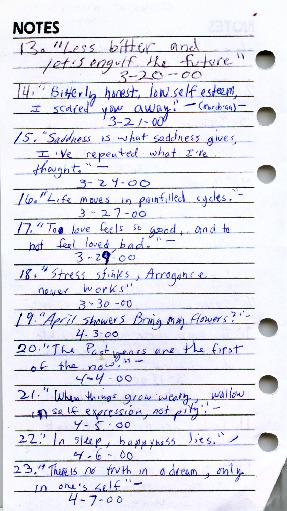 NOTES
13. "Less bitter and
let's engulf the future"
3-20-00
14. "Bitterly honest, low self esteem,
I scared you away." -
3-21-00
15. "Saddness is what saddness gives,
I've repeated what I've
thought." -
3-24-00
16. "Life moves in painfilled cycles." -
3-27-00
17. "To love feels so good, and to
not feel loved bad." -
3-29-00
18. "Stress stinks, Arrogance
never works"
3-30-00
19. "April showers Bring may flowers?" -
4-3-00
20. "The Past years are the first
of the now." -
4-4-00
21. "When things grow weary, wallow
in self expression, not pity." -
4-5-00
22. "In sleep, happyness lies." -
4-6-00
23. "There is no truth in a dream, only
in one's self" -
4-7-00